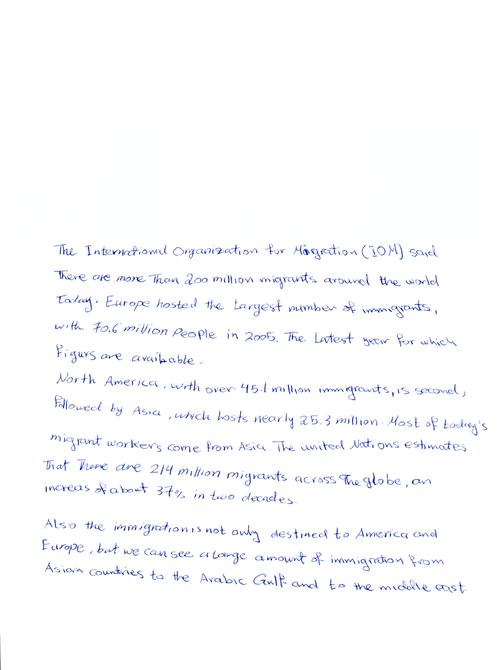 The International Organization for Migration (IOM) said
There are more Than 200 million migrants around the world
Today. Europe hosted the Largest number of immigrants,
with 70.6 million People in 2005, The Latest year for which
Figurs are available.
North America, with over 45.1 million immigrants, is second,
Followed by Asia, which hosts nearly 25.3 million. Most of today's
migrant workers come from Asia The united Nations estimates
That There are 214 million migrants across The globe, an
increas of about 37% in two decades.
Also the immigration is not only destined to America and
Europe, but we can see a large amount of immigration from
Asian countries to the Arabic Gulf and to the middle east